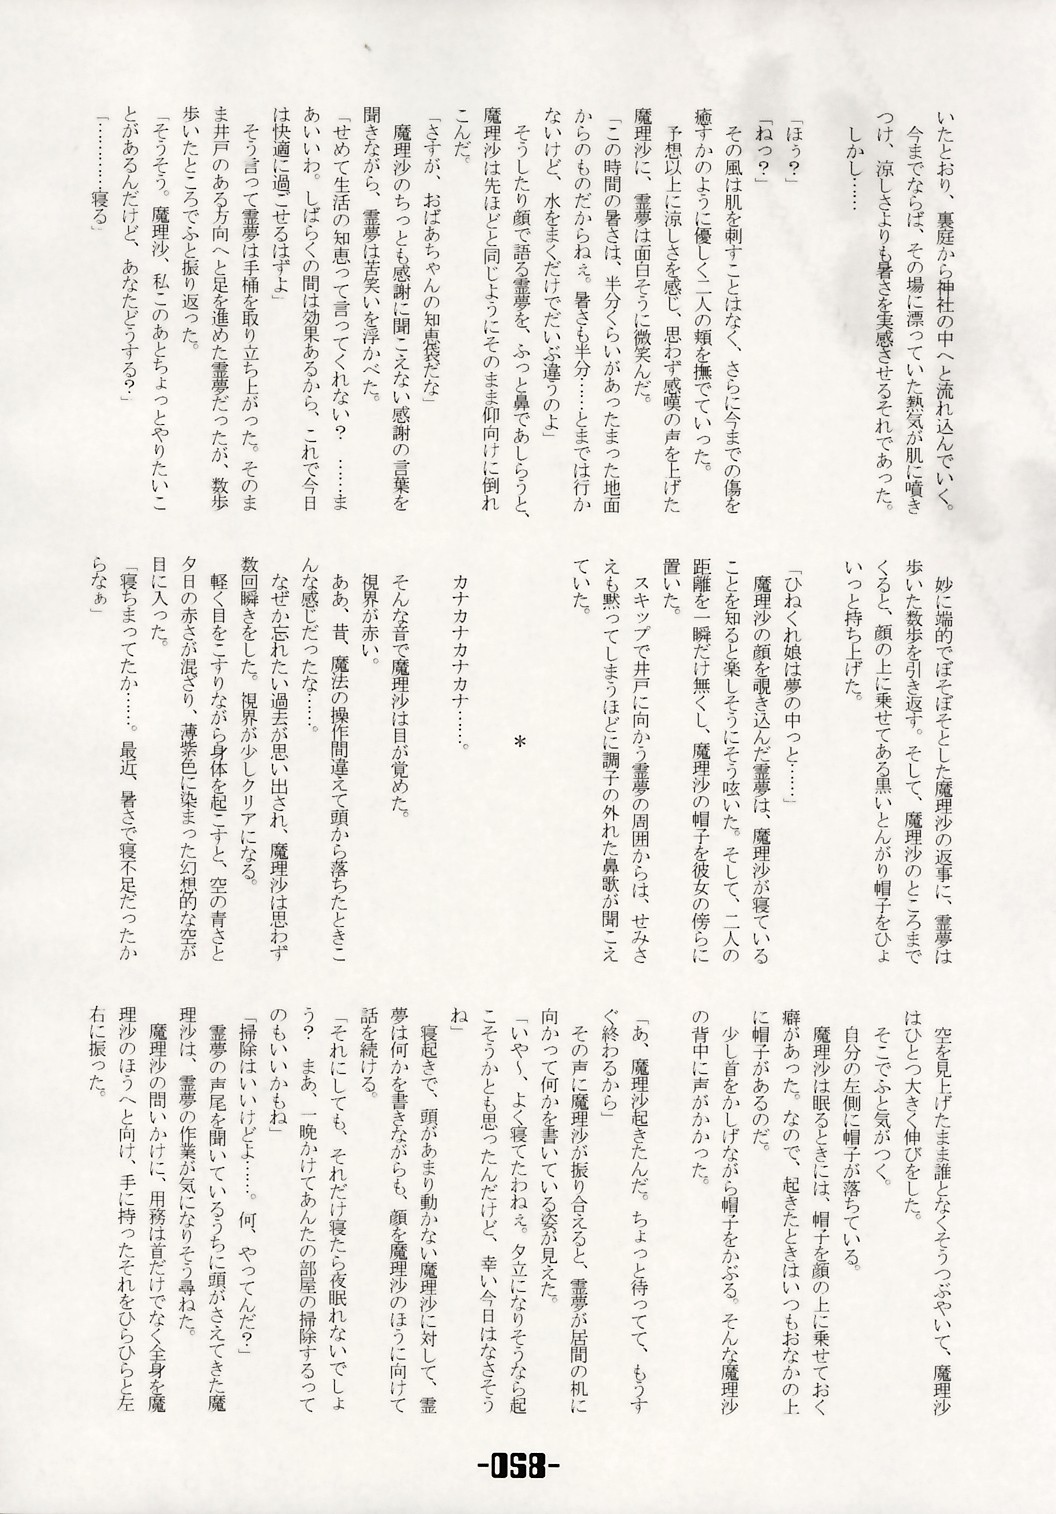 いたとおり、裏庭から神社の中へと流れ込んでいく。
　今までならば、その場に漂っていた熱気が肌に噴き
つけ、涼しさよりも暑さを実感させるそれであった。
　しかし……
「ほぅ？」
「ねっ？」
　その風は肌を刺すことはなく、さらに今までの傷を
癒すかのように優しく二人の頬を撫でていった。
　予想以上に涼しさを感じ、思わず感嘆の声を上げた
魔理沙に、霊夢は面白そうに微笑んだ。
「この時間の暑さは、半分くらいがあったまった地面
からのものだからねぇ。暑さも半分……とまでは行か
ないけど、水をまくだけでだいぶ違うのよ」
　そうしたり顔で語る霊夢を、ふっと鼻であしらうと、
魔理沙は先ほどと同じようにそのまま仰向けに倒れ
こんだ。
「さすが、おばあちゃんの知恵袋だな」
　魔理沙のちっとも感謝に聞こえない感謝の言葉を
聞きながら、霊夢は苦笑いを浮かべた。
「せめて生活の知恵って言ってくれない？　……ま
あいいわ。しばらくの間は効果あるから、これで今日
は快適に過ごせるはずよ」
　そう言って霊夢は手桶を取り立ち上がった。そのま
ま井戸のある方向へと足を進めた霊夢だったが、数歩
歩いたところでふと振り返った。
「そうそう。魔理沙、私このあとちょっとやりたいこ
とがあるんだけど、あなたどうする？」
「…………寝る」
　妙に端的でぼそぼそとした魔理沙の返事に、霊夢は
歩いた数歩を引き返す。そして、魔理沙のところまで
くると、顔の上に乗せてある黒いとんがり帽子をひょ
いっと持ち上げた。
「ひねくれ娘は夢の中っと……」
　魔理沙の顔を覗き込んだ霊夢は、魔理沙が寝ている
ことを知ると楽しそうにそう呟いた。そして、二人の
距離を一瞬だけ無くし、魔理沙の帽子を彼女の傍らに
置いた。
　スキップで井戸に向かう霊夢の周囲からは、せみさ
えも黙ってしまうほどに調子の外れた鼻歌が聞こえ
ていた。
＊
　カナカナカナカナ……。
　そんな音で魔理沙は目が覚めた。
　視界が赤い。
　ああ、昔、魔法の操作間違えて頭から落ちたときこ
んな感じだったな……。
　なぜか忘れたい過去が思い出され、魔理沙は思わず
数回瞬きをした。視界が少しクリアになる。
　軽く目をこすりながら身体を起こすと、空の青さと
夕日の赤さが混ざり、薄紫色に染まった幻想的な空が
目に入った。
「寝ちまってたか……。最近、暑さで寝不足だったか
らなぁ」
　空を見上げたまま誰となくそうつぶやいて、魔理沙
はひとつ大きく伸びをした。
　そこでふと気がつく。
　自分の左側に帽子が落ちている。
　魔理沙は眠るときには、帽子を顔の上に乗せておく
癖があった。なので、起きたときはいつもおなかの上
に帽子があるのだ。
　少し首をかしげながら帽子をかぶる。そんな魔理沙
の背中に声がかかった。
「あ、魔理沙起きたんだ。ちょっと待ってて、もうす
ぐ終わるから」
　その声に魔理沙が振り合えると、霊夢が居間の机に
向かって何かを書いている姿が見えた。
「いや〜、よく寝てたわねぇ。夕立になりそうなら起
こそうかとも思ったんだけど、幸い今日はなさそう
ね」
　寝起きで、頭があまり動かない魔理沙に対して、霊
夢は何かを書きながらも、顔を魔理沙のほうに向けて
話を続ける。
「それにしても、それだけ寝たら夜眠れないでしょ
う？　まあ、一晩かけてあんたの部屋の掃除するって
のもいいかもね」
「掃除はいいけどよ……。何、やってんだ？」
　霊夢の声尾を聞いているうちに頭がさえてきた魔
理沙は、霊夢の作業が気になりそう尋ねた。
　魔理沙の問いかけに、用務は首だけでなく全身を魔
理沙のほうへと向け、手に持ったそれをひらひらと左
右に振った。
-058-